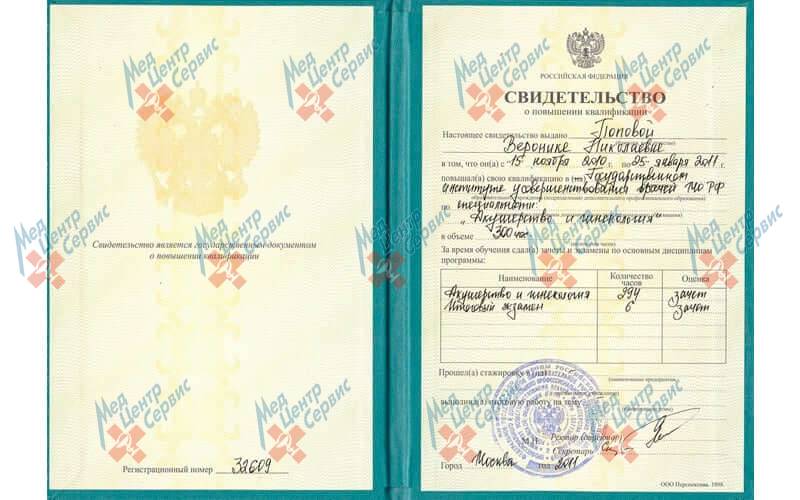 Свидетельство является государственным документом
о повышении квалификации
Регистрационный номер 32609
РОССИЙСКАЯ ФЕДЕРАЦИЯ
СВИДЕТЕЛЬСТВО
о повышении квалификации
Настоящее свидетельство выдано Поповой
Веронике Николаевне
в том, что он(а) с "15" ноября 2010 г. по "25" января 2011 г.
повышал(а) свою квалификацию в (на) Государственном
институте усовершенствования врачей МО РФ
по специальности:
"Акушерство и гинекология"
в объеме 300 час
За время обучения сдал(а) зачеты и экзамены по основным дисциплинам
программы:
Наименование Количество часов Оценка
Акушерство и гинекология 294 зачет
Итоговый экзамен 6 зачет
Прошел(а) стажировку в (на)
(наименование предприятия,
выполнил(а) итоговую работу на тему
М.П. Ректор (директор)
Секретарь
Город Москва год 2011
ООО Перспектива, 1998.
Мед Центр Сервис